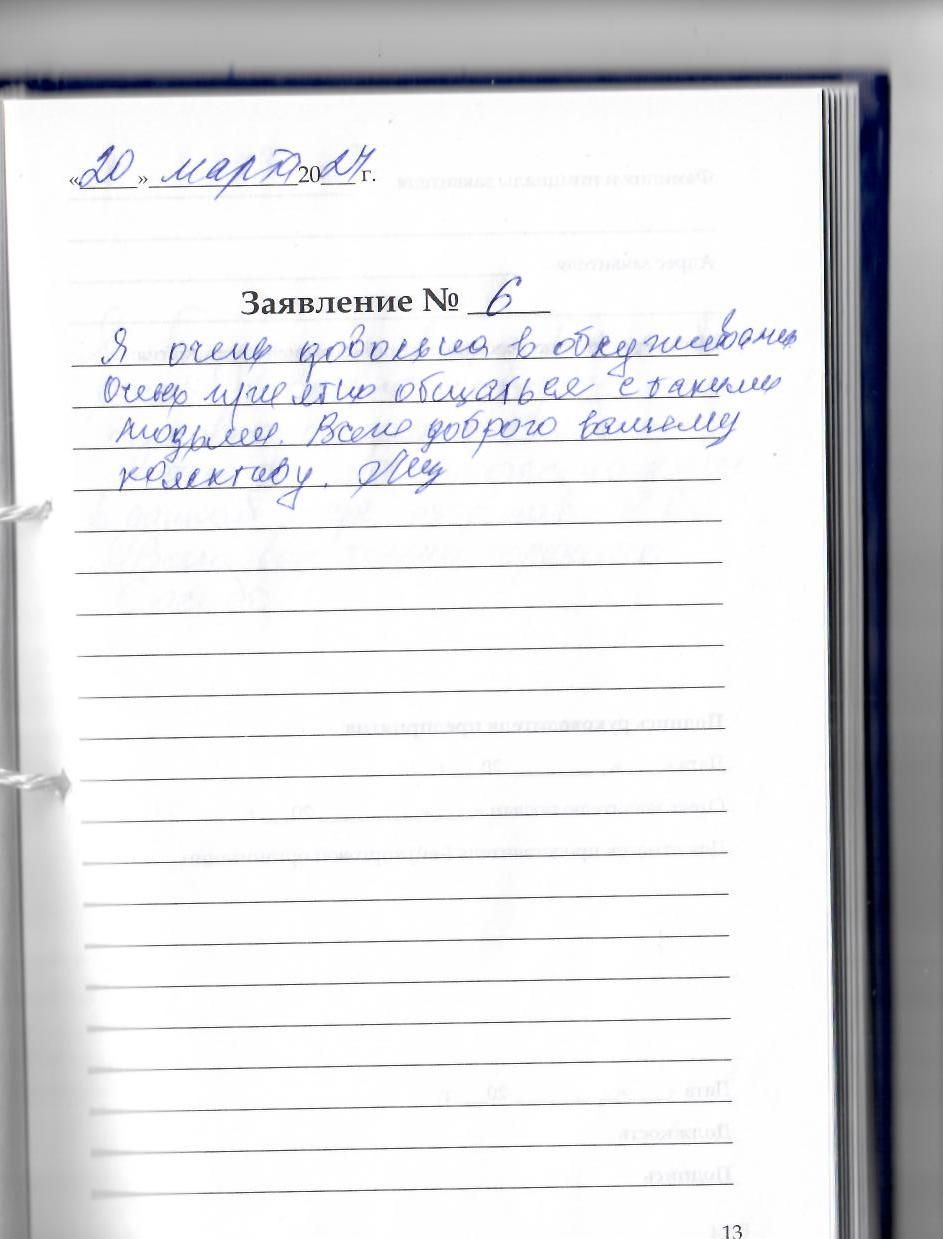 «20» марта 2024 г.
Заявление № 6
Я очень довольна в обслуживании
Очень приятно общаться с такими
людьми. Всего доброго вашему
колективу.
13